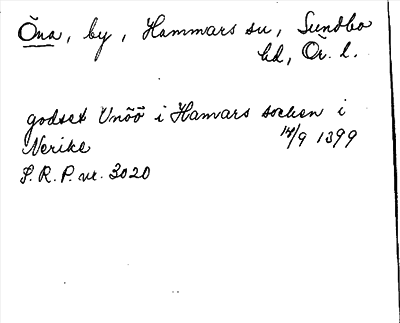 Öna, by, Hammars sn, Sundbo
hd, Ör. l.
godset Unöö i Hamars socken i
Nerike 14/9 1399
S. R. P. nr. 3020